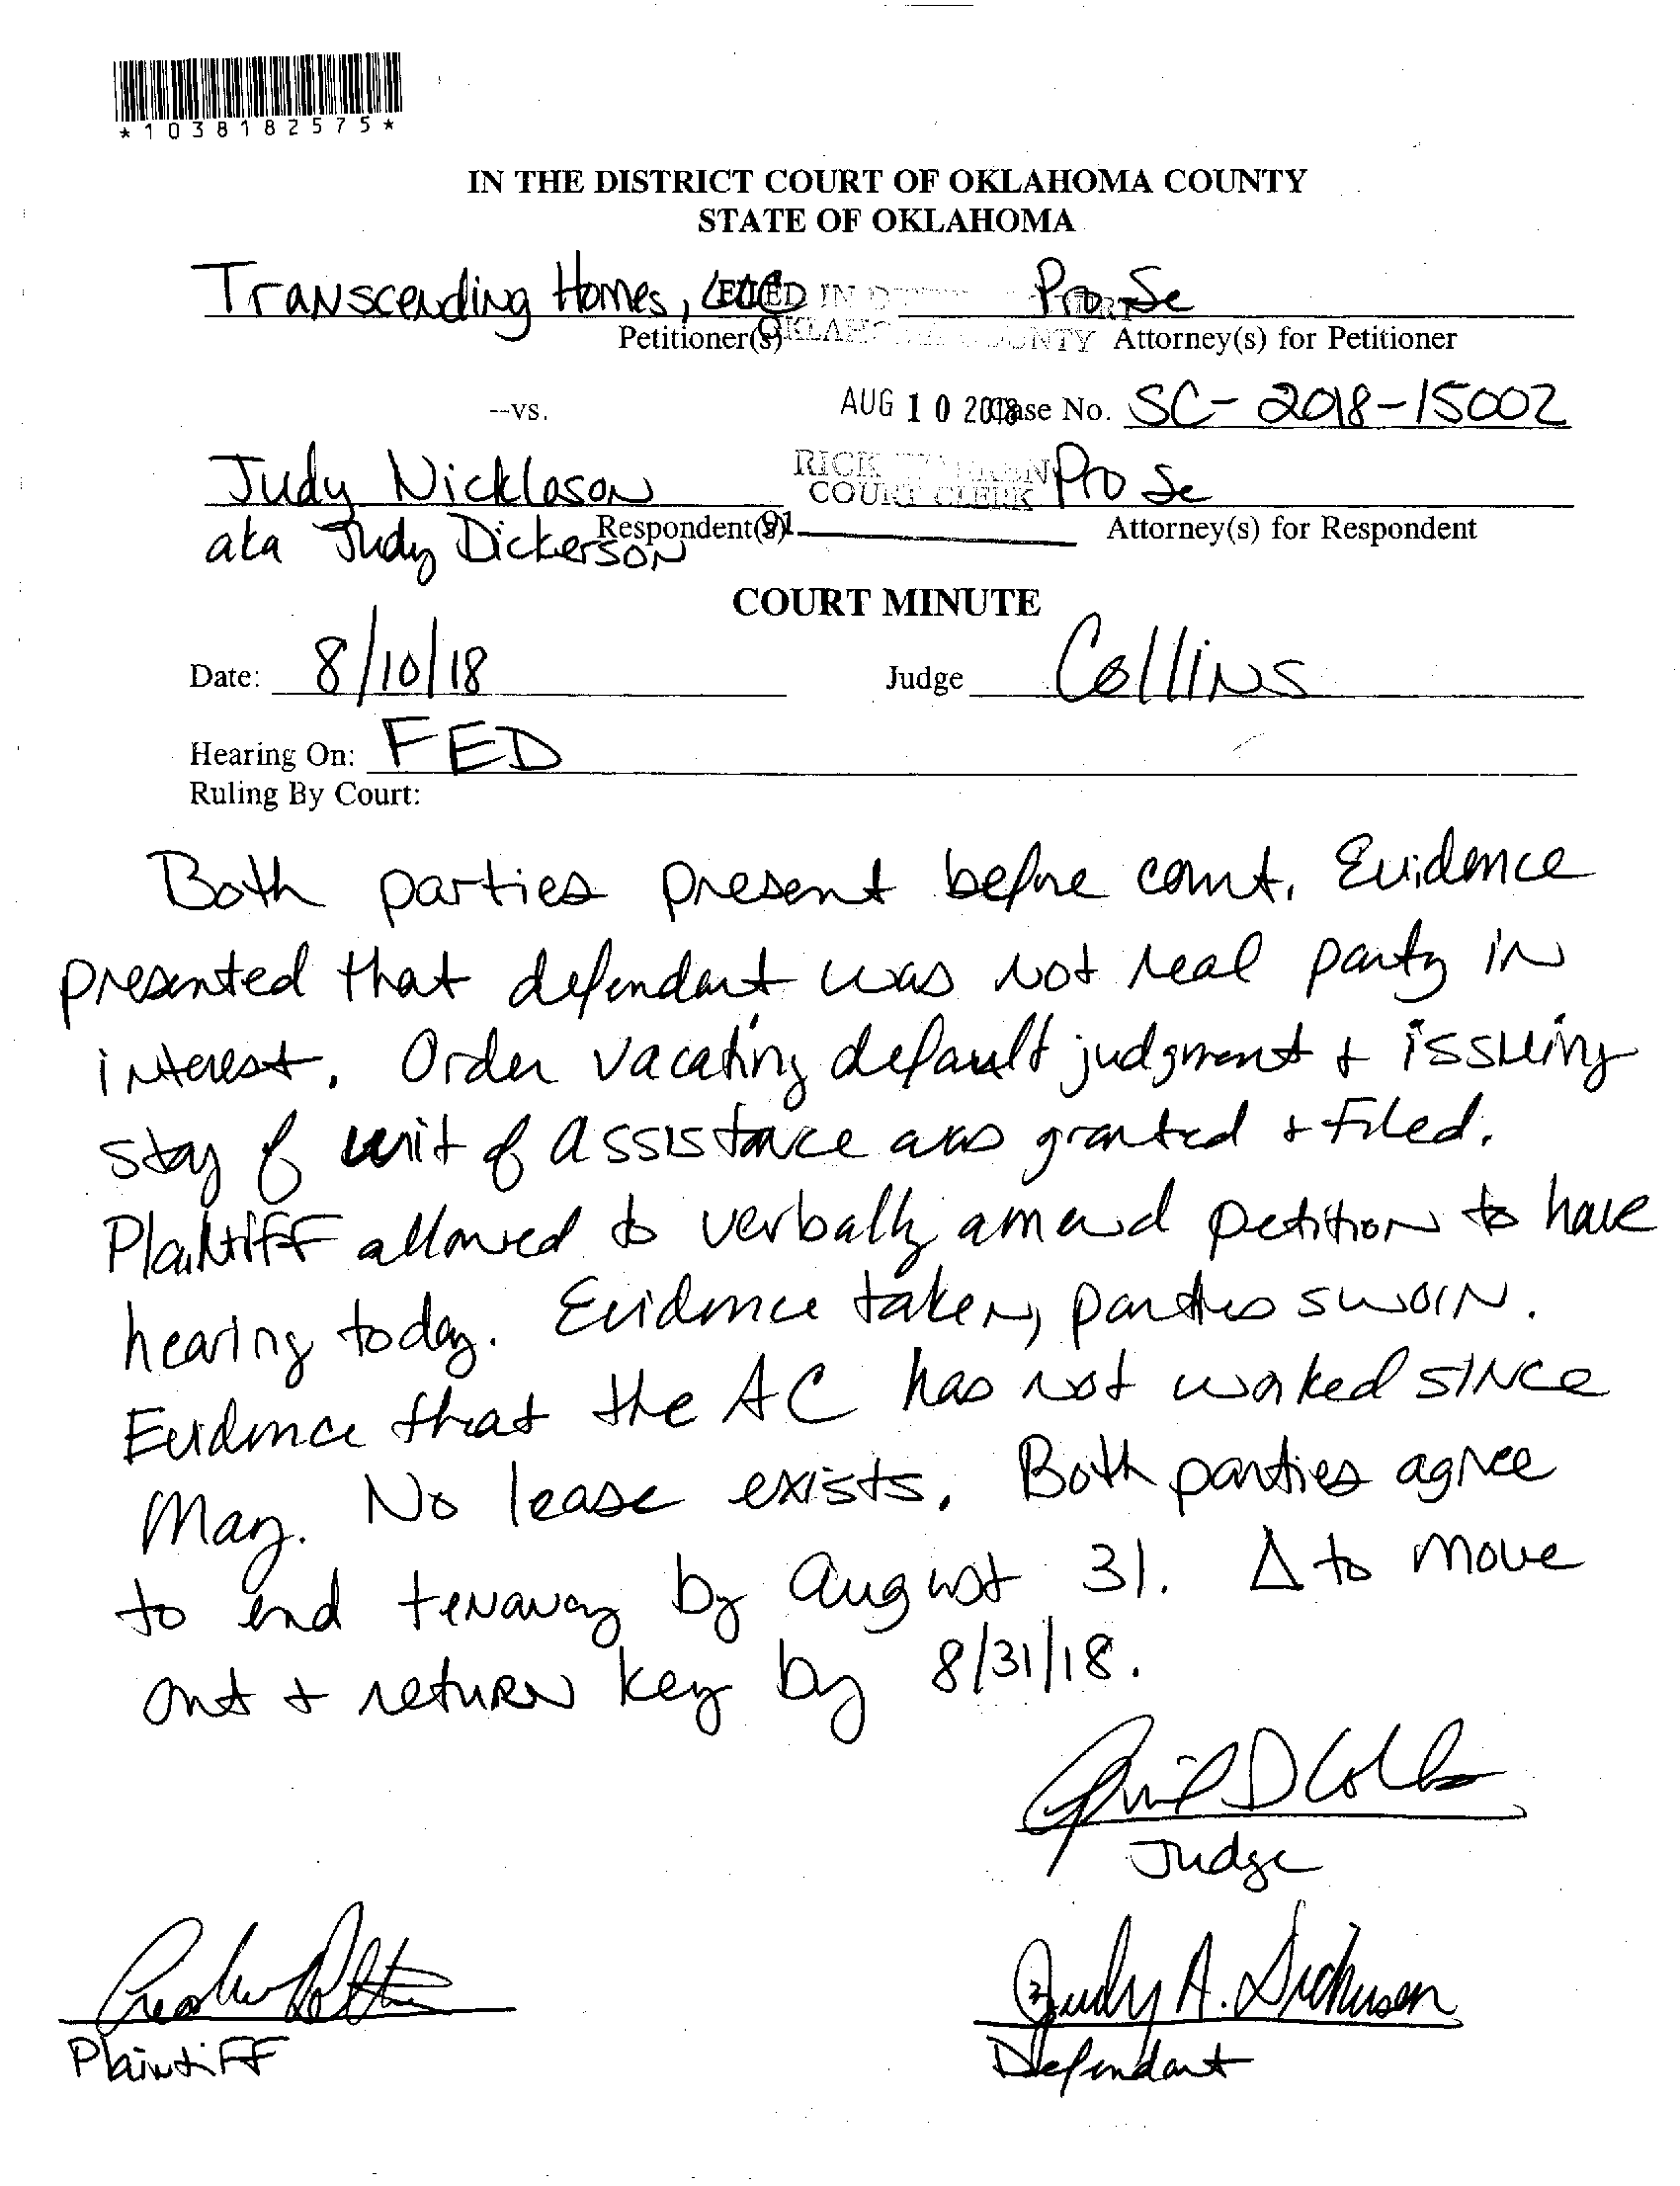 *1038182575*
IN THE DISTRICT COURT OF OKLAHOMA COUNTY
STATE OF OKLAHOMA
Transcending Homes, LLC Pro Se
FILED IN
Petitioner(s) OKLAHOMA COUNTY Attorney(s) for Petitioner
--vs. AUG 10 2018 Case No. SC-2018-15002
Judy Nickleson RICK Pro Se
COURT CLERK
aka Judy Dickerson Respondent(s) 91 Attorney(s) for Respondent
COURT MINUTE
Date: 8/10/18 Judge Collins
Hearing On: FED
Ruling By Court:
Both parties present before court. Evidence
presented that defendant was not real party in
interest. Order vacating default judgment + issuing
stay of writ of assistance was granted + filed.
Plaintiff allowed to verbally amend petition to have
hearing today. Evidence taken, parties sworn.
Evidence that the AC has not worked since
May. No lease exists. Both parties agree
to end tenancy by August 31. Δ to move
out + return key by 8/31/18.
Judge
Judy A. Dickerson
Plaintiff Defendant